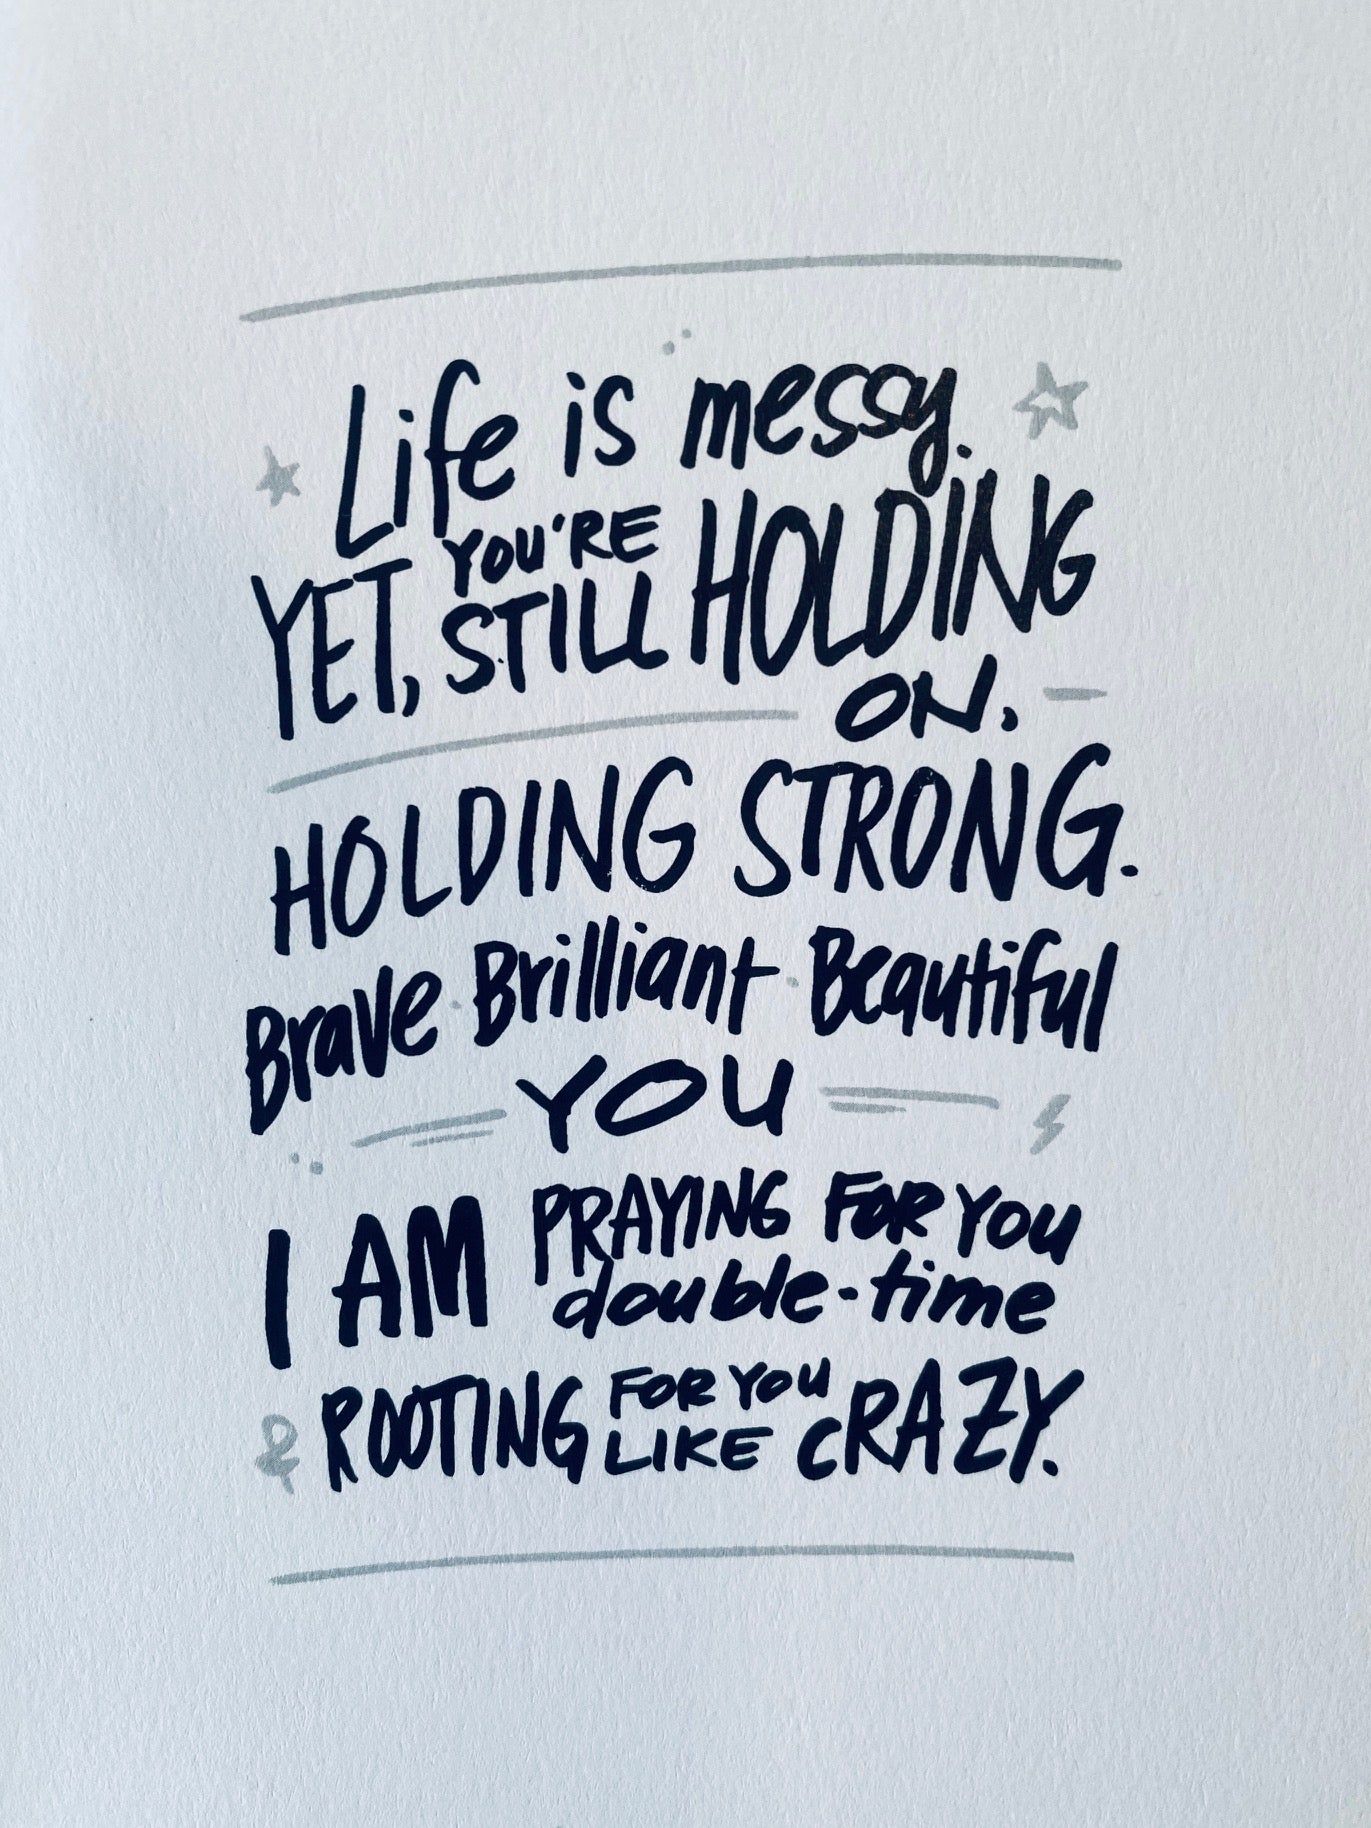 Life is messy.
YET, YOU'RE STILL HOLDING
ON.
HOLDING STRONG.
Brave · Brilliant · Beautiful
YOU
I AM PRAYING FOR YOU
double-time
& ROOTING FOR YOU LIKE CRAZY.